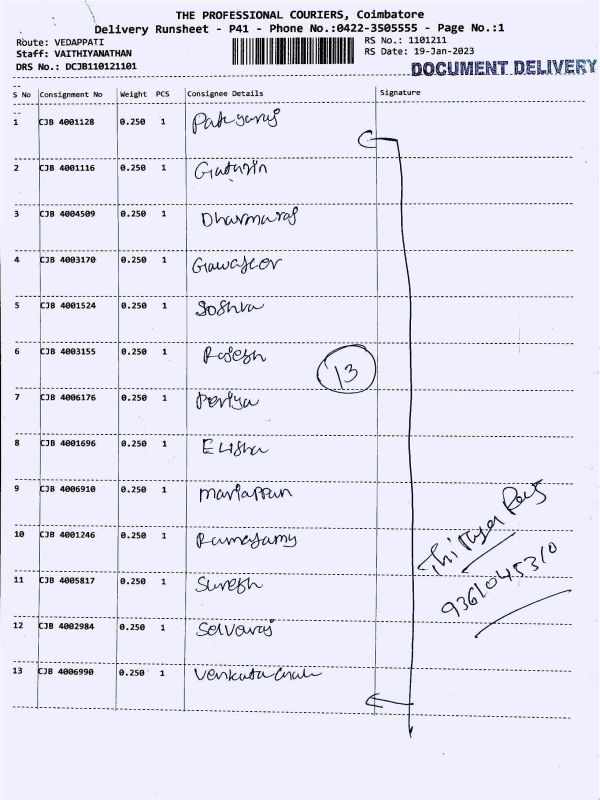 THE PROFESSIONAL COURIERS, Coimbatore
Delivery Runsheet - P41 - Phone No.:0422-3505555 - Page No.:1
Route: VEDAPPATI
Staff: VAITHIYANATHAN
DRS No.: DCJB110121101
RS No.: 1101211
RS Date: 19-Jan-2023
DOCUMENT DELIVERY
S No Consignment No Weight PCS Consignee Details Signature
1 CJB 4001128 0.250 1
2 CJB 4001116 0.250 1
3 CJB 4004509 0.250 1 Dharmaraj
4 CJB 4003170 0.250 1
5 CJB 4001524 0.250 1
6 CJB 4003155 0.250 1 Rajesh
13
7 CJB 4006176 0.250 1 Periya
8 CJB 4001696 0.250 1 Elisha
9 CJB 4006910 0.250 1 mariappan
10 CJB 4001246 0.250 1 Ramasamy
11 CJB 4005817 0.250 1 Suresh
12 CJB 4002984 0.250 1 Selvaraj
13 CJB 4006990 0.250 1
9361045310